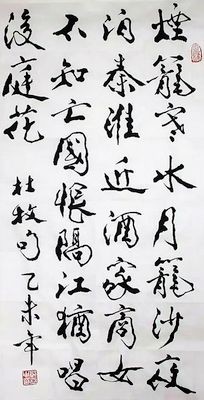 煙籠寒水月籠沙夜
泊秦淮近酒家商女
不知亡國恨隔江猶唱
後庭花
杜牧句乙未年